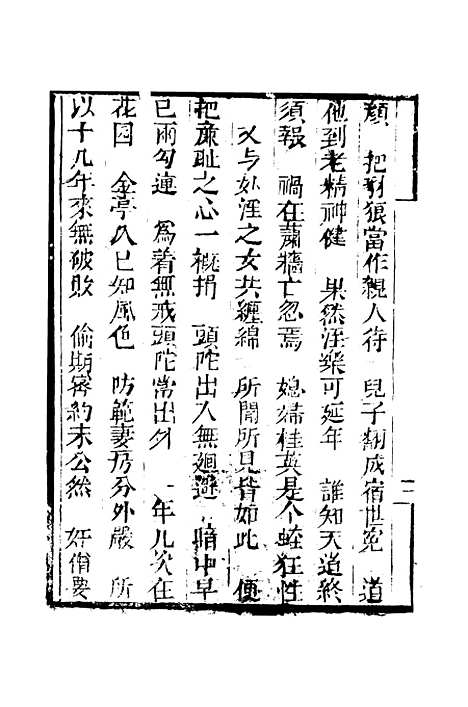 顏　把豺狼當作親人待　兒子翻成宿世冤　道
他到老精神健　果然淫樂可延年　誰知天道終
須報　禍在蕭牆亡忽焉　媳婦桂英是个蛙狂性
又与奴淫之女共纏綿　所聞所見皆如此　便
把廉耻之心一概捐　頭陀出入無迴避　暗中早
已兩勾連　爲着無戒頭陀常出外　一年几次在
花园　金亭久已知風色　防範妻房分外嚴　所
以十几年來無破敗　偷期密約未公然　奸僧要